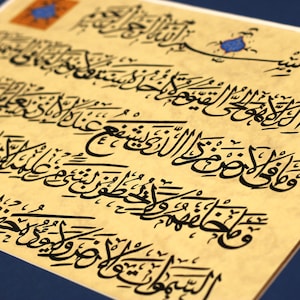 بسم الله الرحمن الرحيم
الله لا اله الا هو الحي القيوم لا تأخذه سنة ولا نوم له ما في السموات
وما في الارض من ذا الذي يشفع عنده الا باذنه يعلم
وما خلفهم ولا يحيطون بشيء من علمه الا
السموات والارض ولا يؤوده